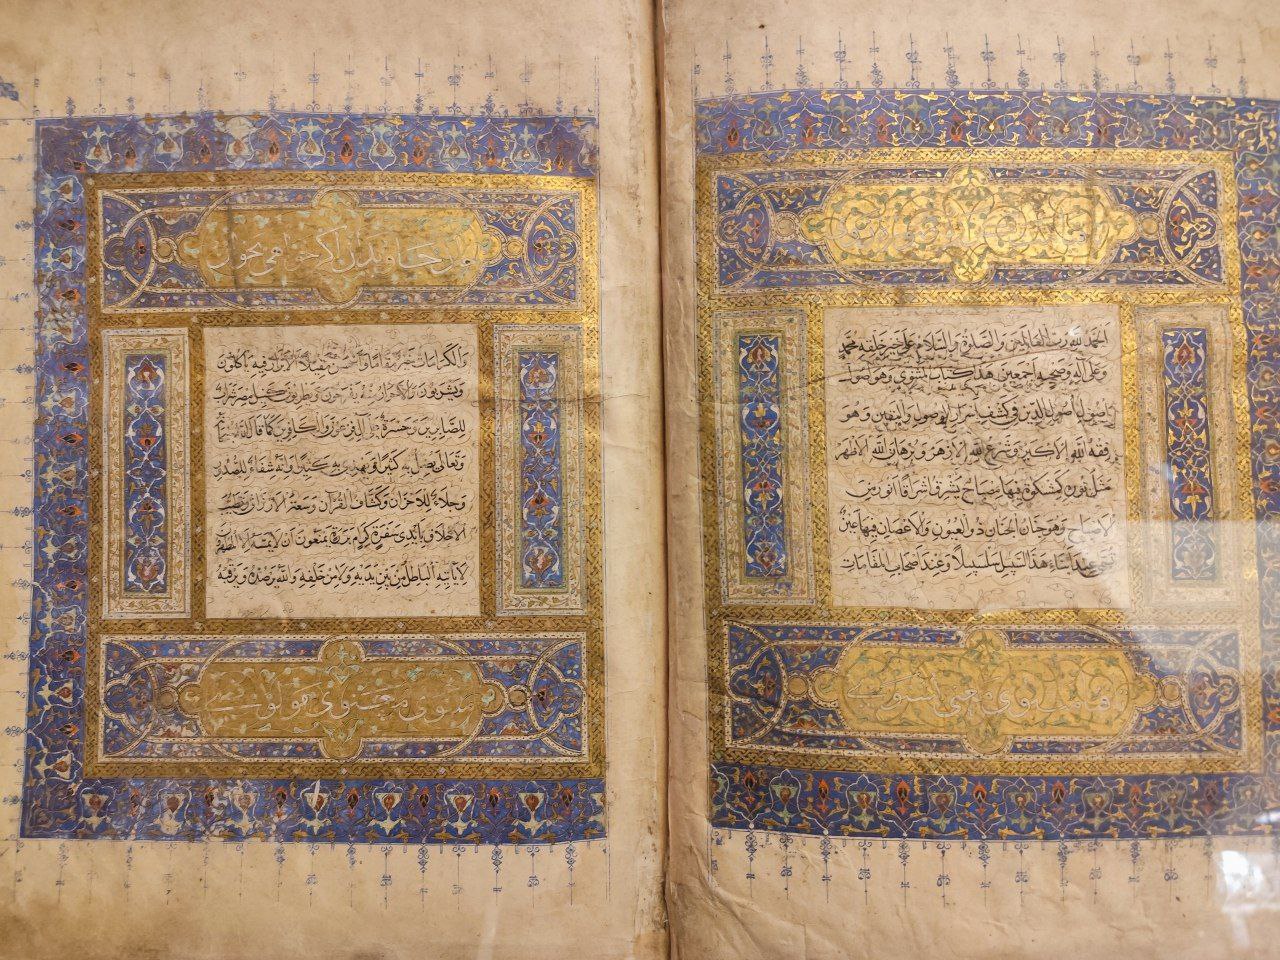 الحمد لله رب العالمين والصلوة والسلام علي خير خلقه محمد
وعلى آله وصحبه اجمعين هذا كتاب المثنوي وهو اصول
اصول اصول الدين في كشف اسرار الوصول واليقين وهو
فقه الله الاكبر وشرع الله الازهر وبرهان الله الاظهر
مثل نوره كمشكوة فيها مصباح يشرق اشراقا انور من
الاصباح وهو جنان الجنان ذو العيون والاغصان فيها عين
تسمى عند ابناء هذا السبيل سلسبيلا وعند اصحاب المقامات
اكر خواهى بخوان
والكرامات خير مقاما واحسن مقيلا الابرار فيه ياكلون
ويشربون والاحرار منه يفرحون ويطربون كنيل مصر شراب
للصابرين وحسرة على آل فرعون والكافرين كما قال الله
وتعالى يضل به كثيرا ويهدي به كثيرا وانه شفاء للصدور
وجلاء للاحزان وكشاف القرآن وسعة الارزاق وتطييب
الاخلاق بايدي سفرة كرام بررة يمنعون ان لا يمسه الا المطهرون
لا ياتيه الباطل من بين يديه ولا من خلفه والله يرصده ويرقبه
مثنوى معنوى مولوى